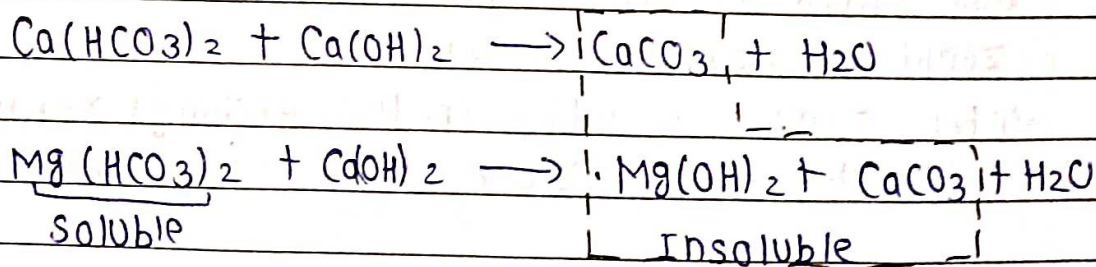 Ca(HCO3)2 + Ca(OH)2 → CaCO3 + H2O
Mg(HCO3)2 + Ca(OH)2 → Mg(OH)2 + CaCO3 + H2O
Soluble Insoluble